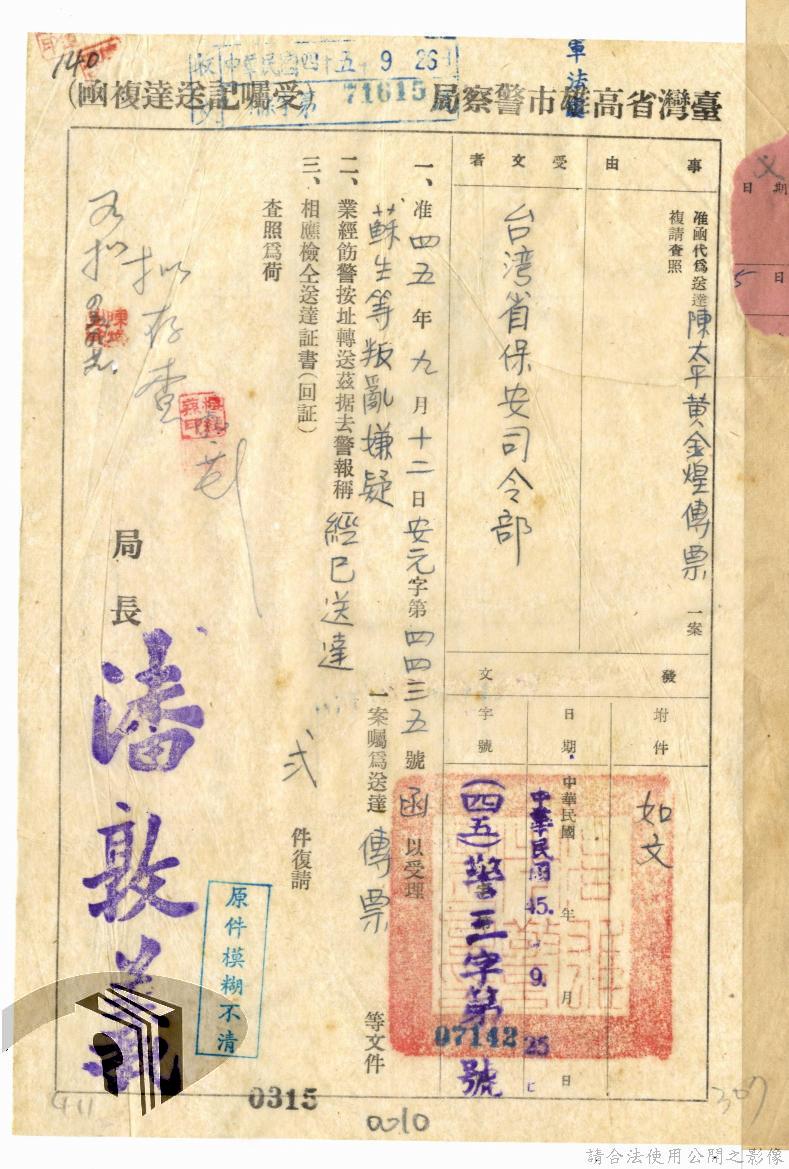 140
收 中華民國四十五年 9 26日
文 保字第 71615
軍法處
臺灣省高雄市警察局（受囑記送達複函）
事由
准函代為送達陳太平黃金煌傳票一案
複請查照
受文者
台湾省保安司令部
發文
附件
如文
日期
中華民國 年 月 日
中華民國 45. 9. 25
字號
(四五)警三字第 07142 號
一、准四五年九月十二日安元字第四四三五號函以受理
蘇生等叛亂嫌疑 一案囑為送達傳票 等文件
二、業經飭警按址轉送茲据去警報稱經已送達
三、相應檢仝送達証書(回証) 弍 件復請
查照為荷
拟存查
局長 潘敦義
原件模糊不清
0315
0010
307
期日
日
5
請合法使用公開之影像